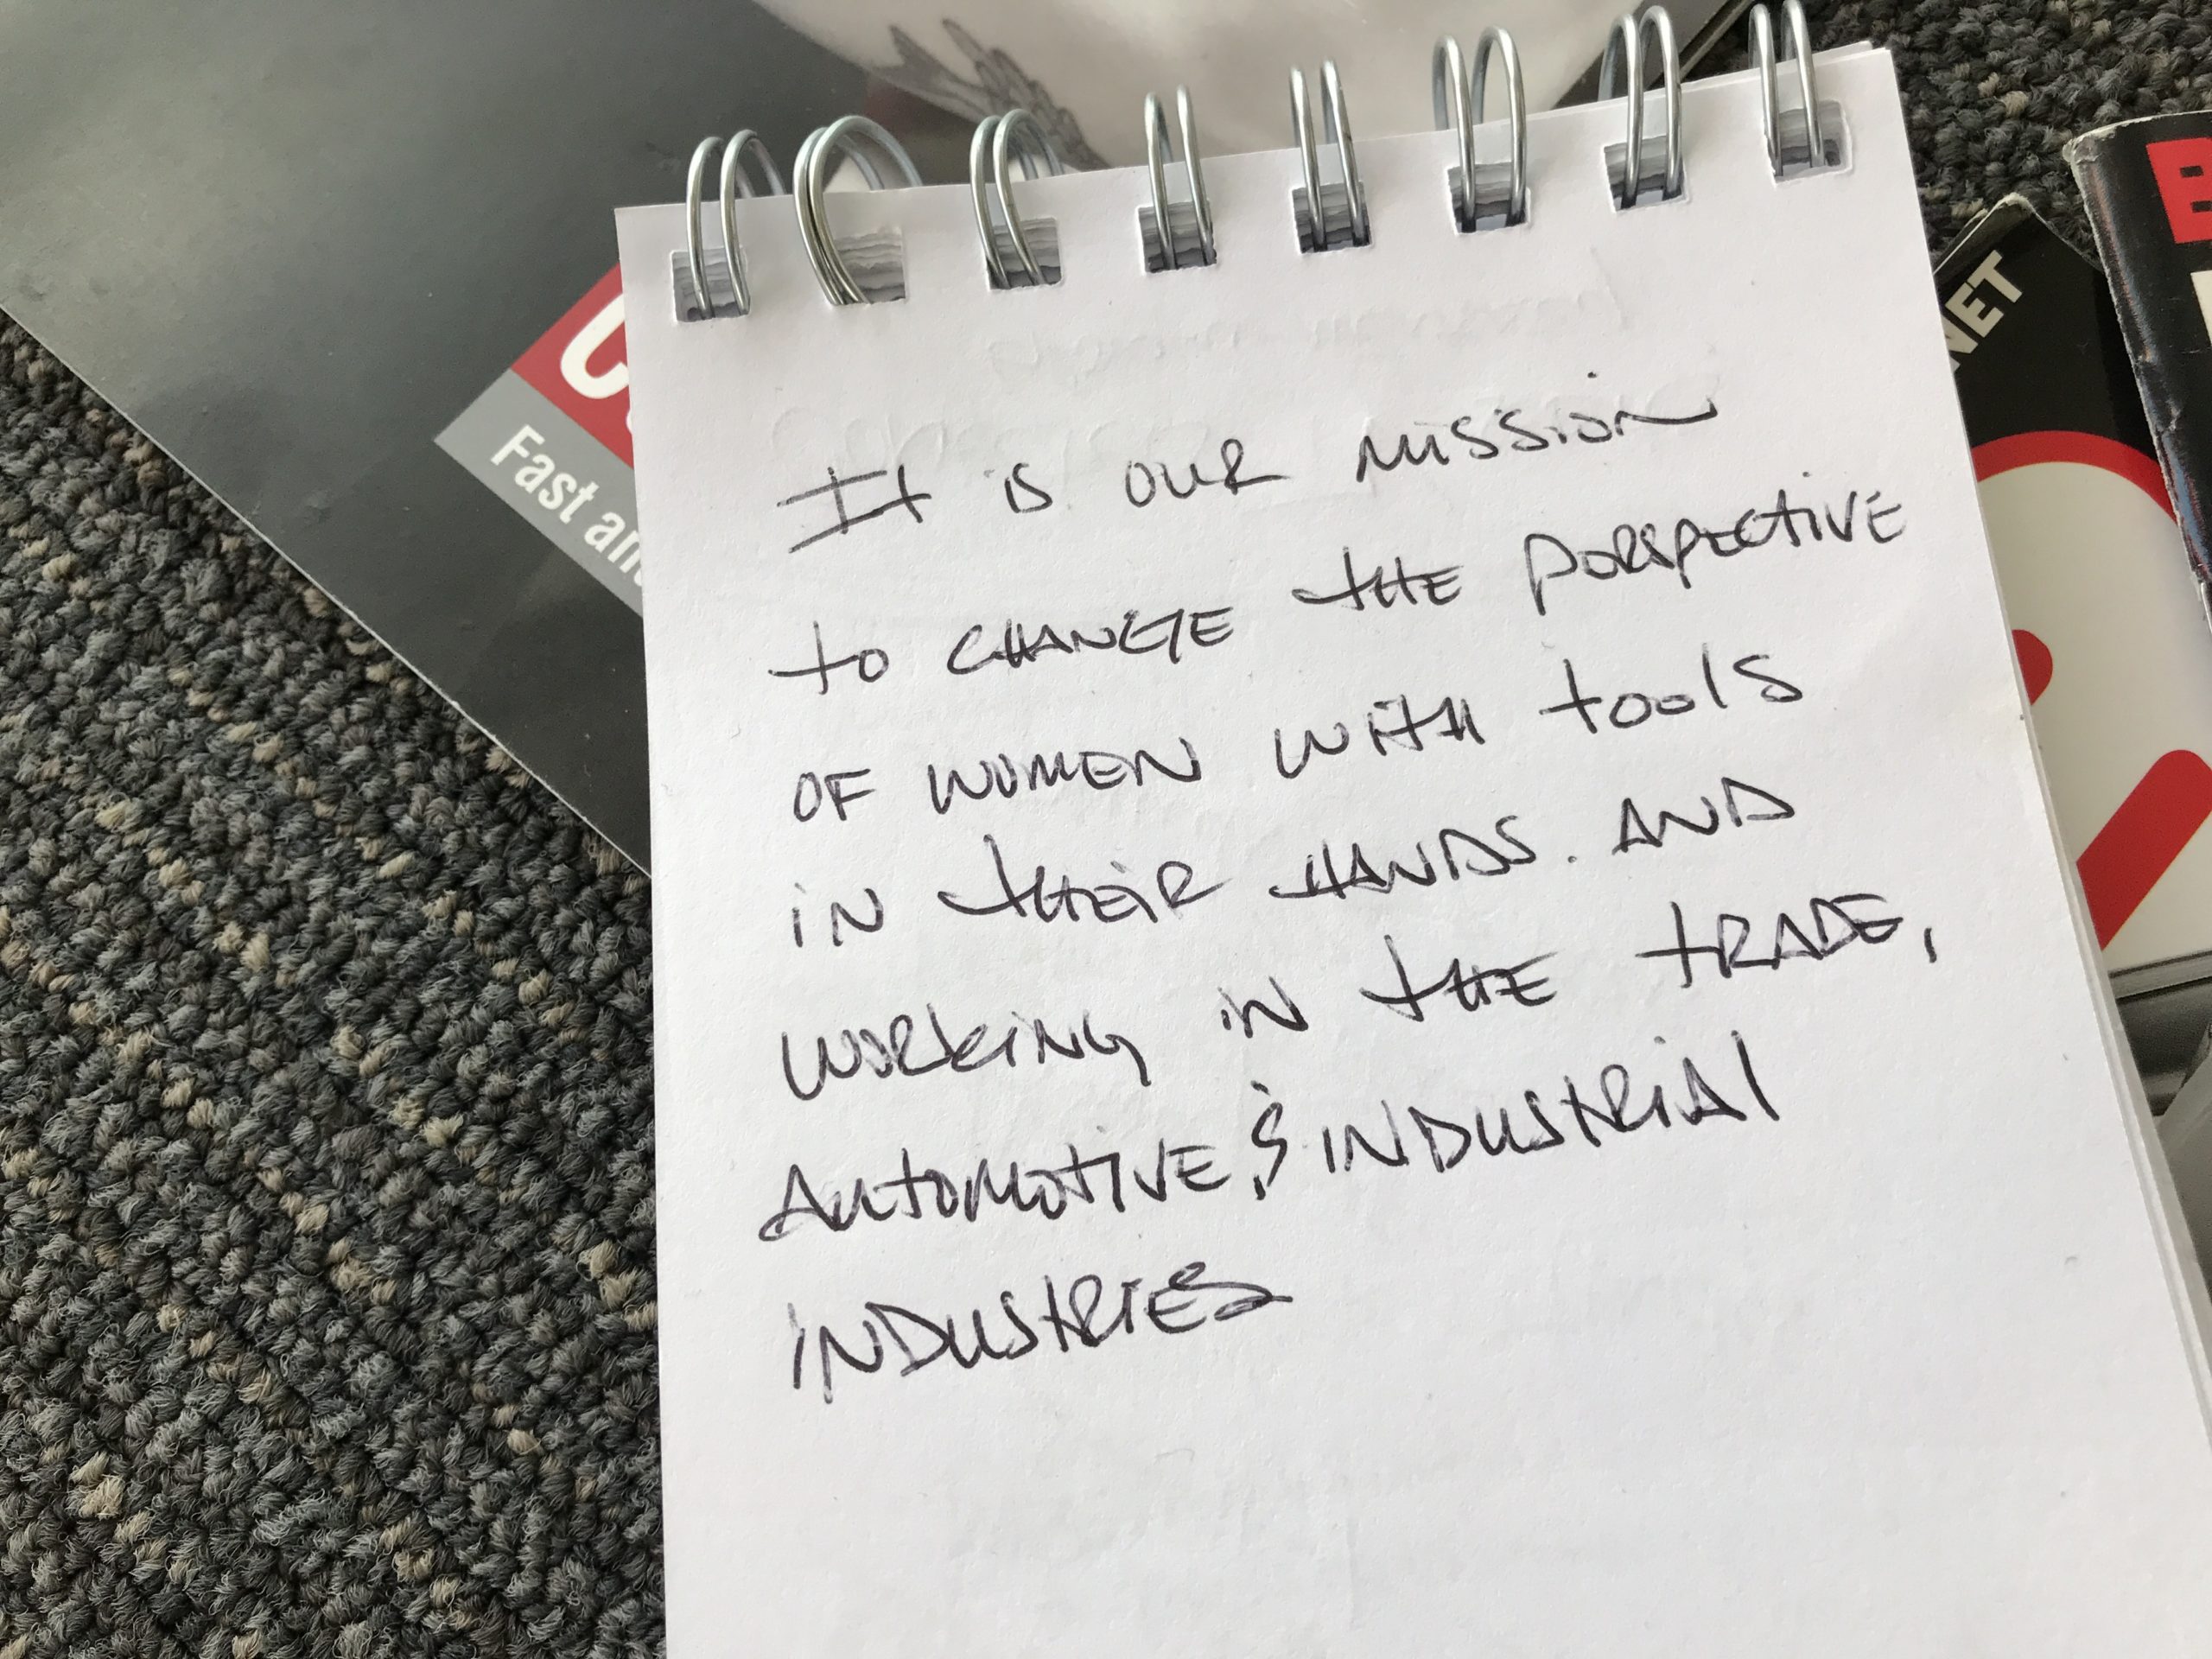 It is our mission
to change the perspective
of women with tools
in their hands. And
working in the trade,
automotive, & industrial
industries
Fast an
NET
B